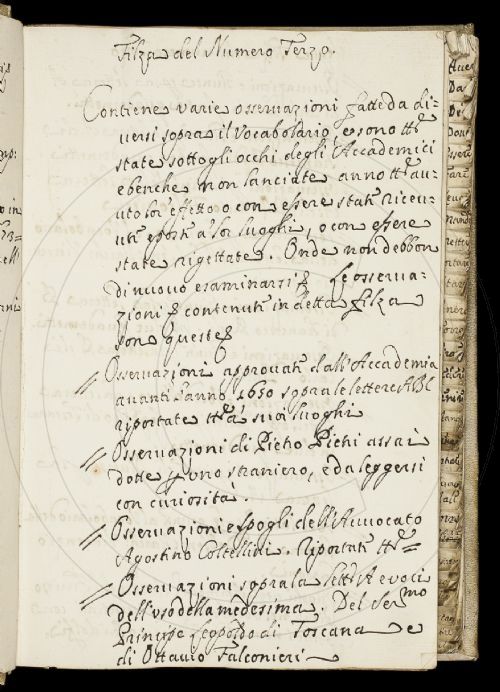 Filza del Numero Terzo.
Contiene varie osservazioni fatte da di-
versi sopra il Vocabolario, e sono tt.e
state sotto gli occhi degli Accademici
e benche non lanciate anno tt.e au-
uto lor' effetto o con essere state riceu-
ute e poste a' lor luoghi, o con essere
state rigettate. Onde non debbon
di nuovo esaminarsi. Le osserva-
zioni contenute in detta filza
son queste
Osservazioni approvate dall'Accademia
avanti l'anno 1650 sopra le lettere ABI
riportate tt.e a' suoi luoghi
Osservazioni di Pietro Pichi assai
dotte p uno straniero, e da leggersi
con curiosità.
Osservazioni e spogli dell'Auuocato
Agostino Coltellini. Riportati tt.i
Osservazioni sopra la lett.a A e voci
dell'uso della medesima. Del Ser.mo
Principe Leopoldo di Toscana e
di Ottavio Falconieri